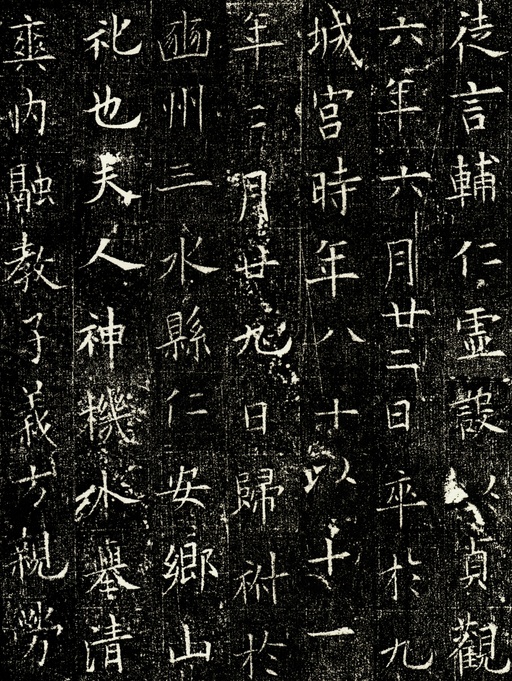 徒言輔仁虛設以貞觀
六年六月廿二日卒於九
城宮時年八十以十一
年二月廿九日歸祔於
豳州三水縣仁安鄉山
礼也夫人神機氷舉清
爽内融教子義方親勞